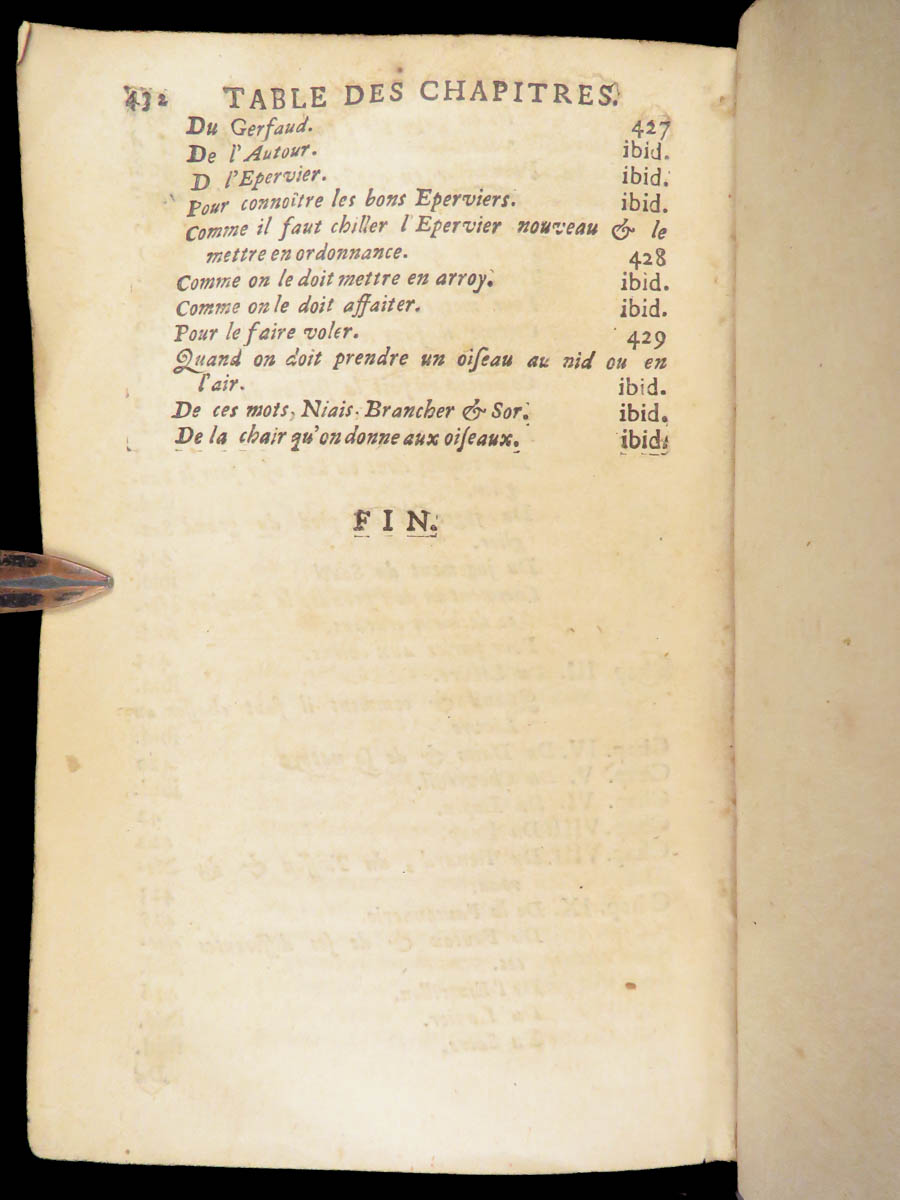 432 TABLE DES CHAPITRES.
Du Gerfaud. 427
De l'Autour. ibid.
D l'Epervier. ibid.
Pour connoître les bons Eperviers. ibid.
Comme il faut chiller l'Epervier nouveau & le
mettre en ordonnance. 428
Comme on le doit mettre en arroy. ibid.
Comme on le doit affaiter. ibid.
Pour le faire voler. 429
Quand on doit prendre un oiſeau au nid ou en
l'air. ibid.
De ces mots, Niais, Brancher & Sor. ibid.
De la chair qu'on donne aux oiſeaux. ibid.
FIN.